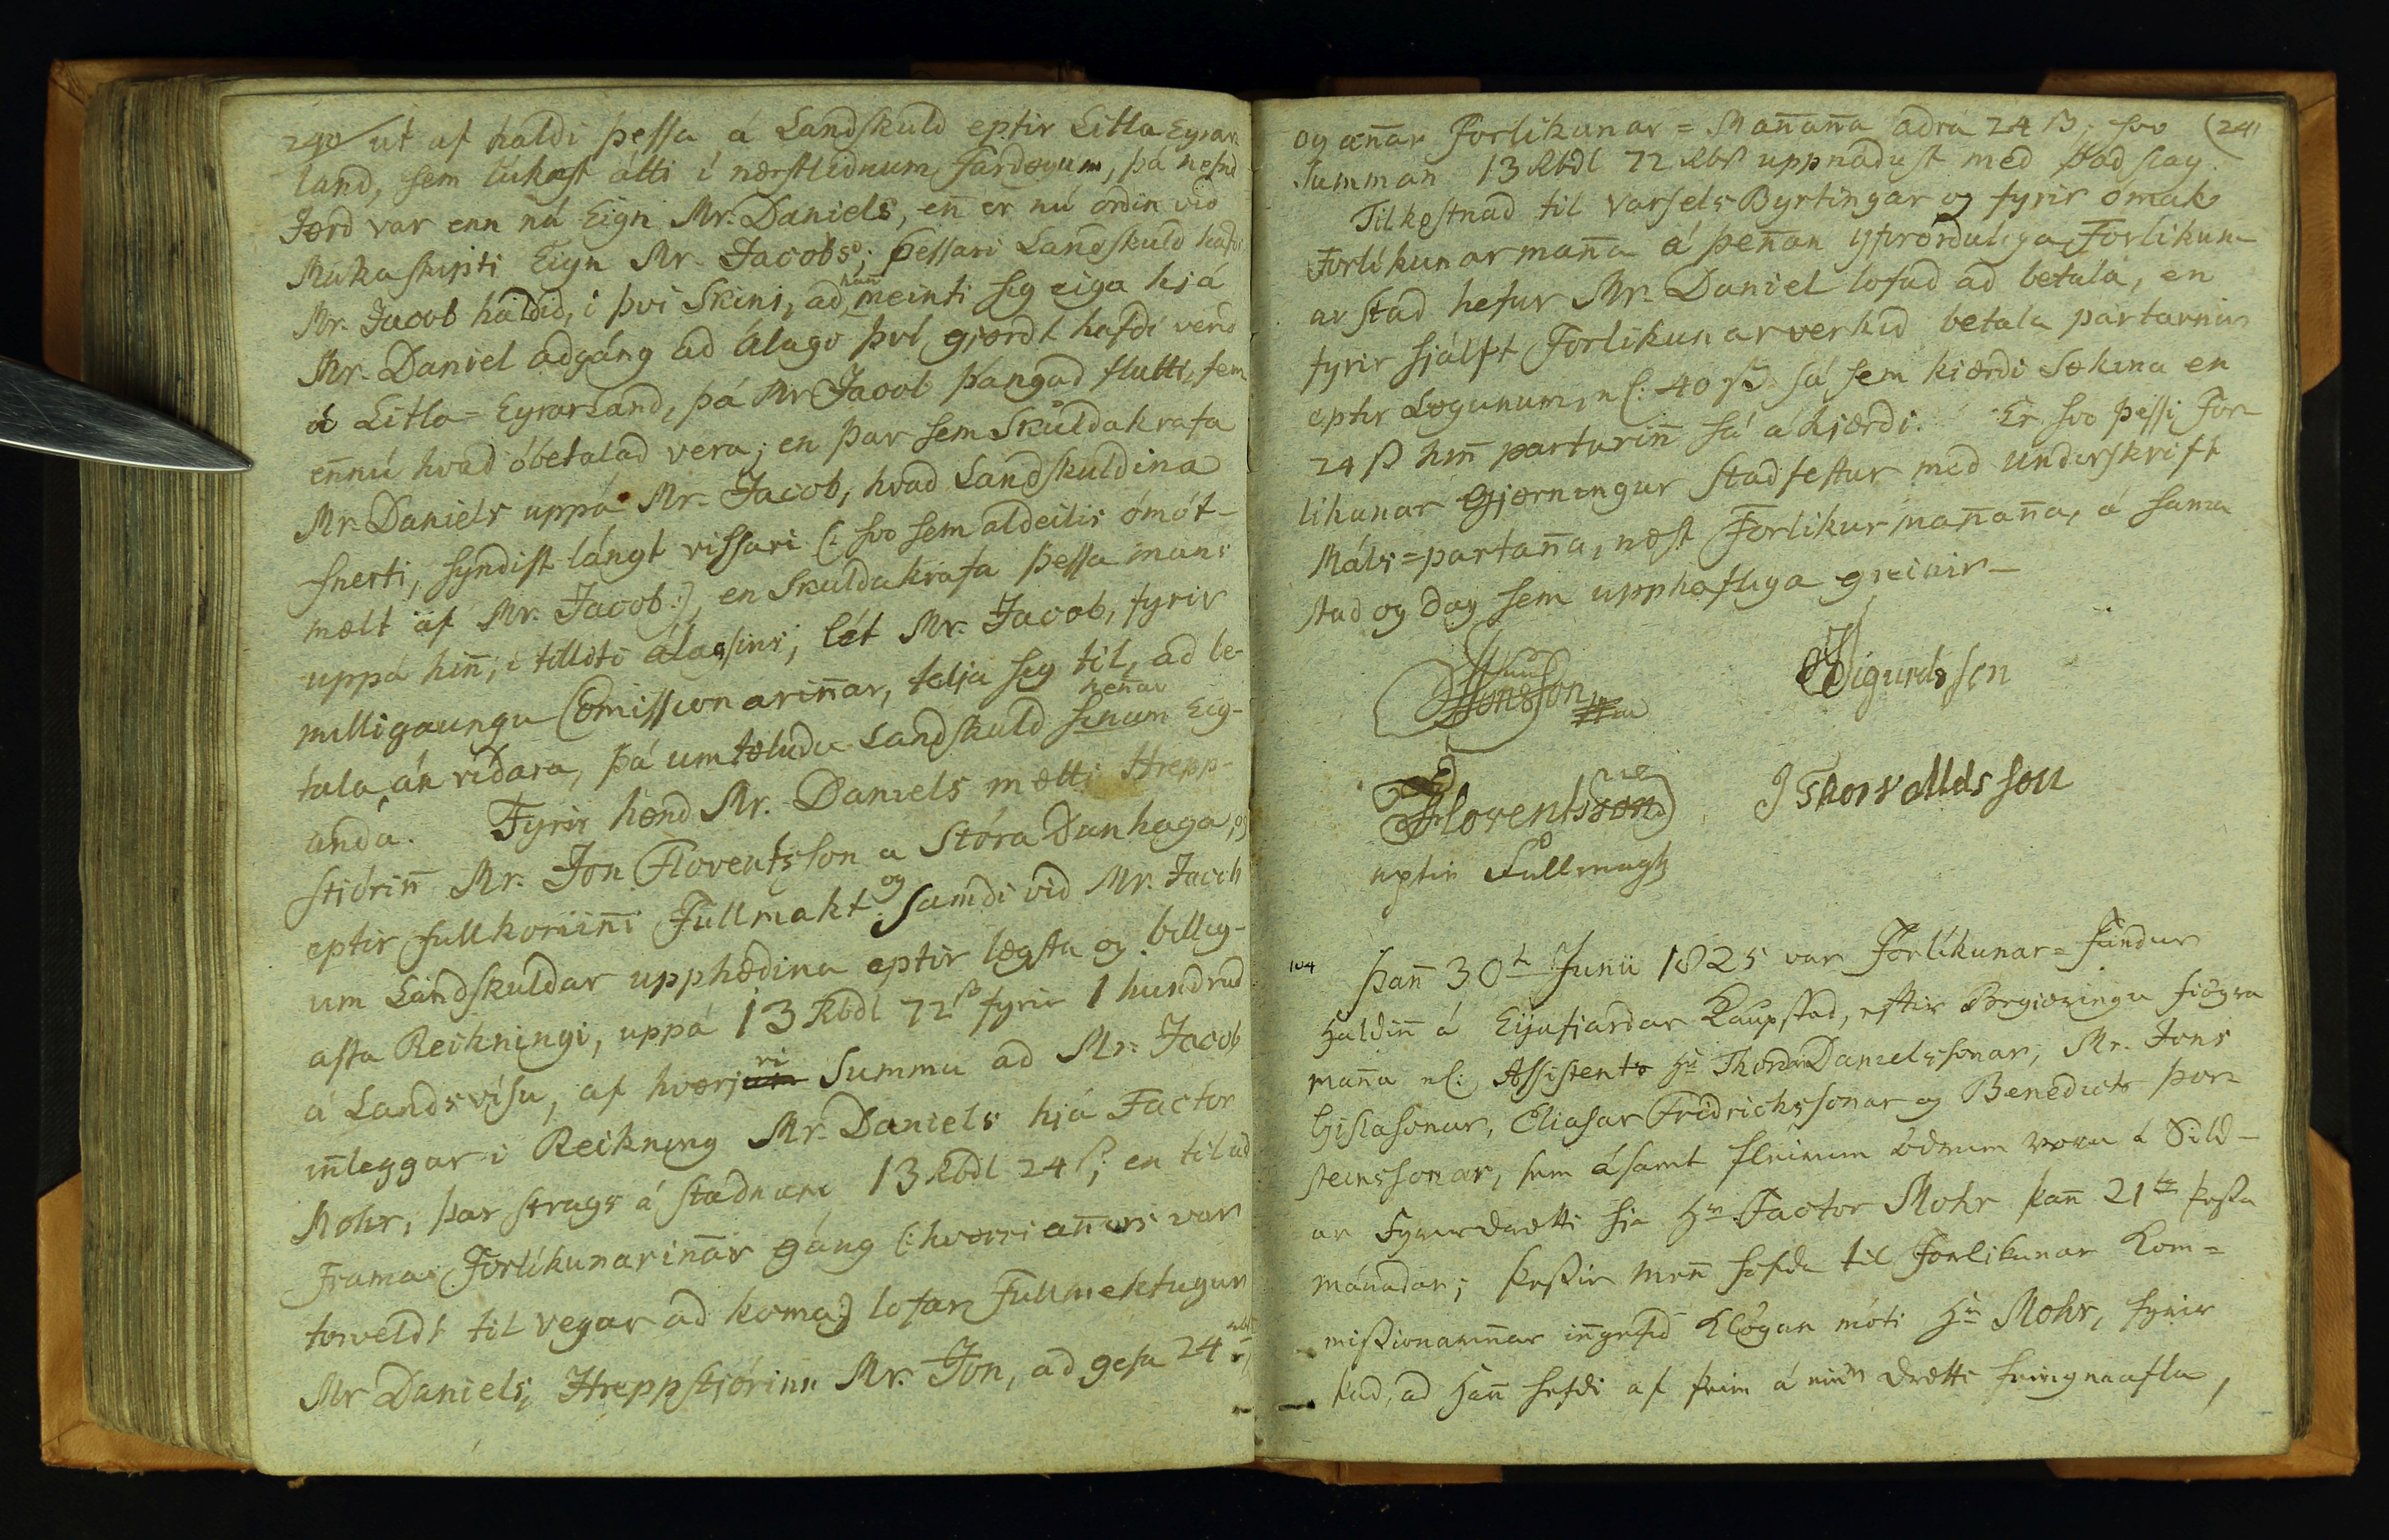 240/ út af haldi þessa, á Landskuld eptir Litla Eyrar
land, sem lúkast átti í næstliðnum fardögum, þá nefnd
Jörð var enn nú Eign Mr. Daniels, en̄ er nú ordin við
Makaskipti Eign Mr. Jacobs; þessari Landskuld hafdi
Mr. Jacob haldið, i því Skini, ad han̄ meinti sig eiga hjá
Mr. Daniel adgáng ad álage því, gjördt hafdi verid
á Litla-Eyrarland, þá Mr Jacob þangad flutti, sem
en̄nú hvad óbetalad vera; en þar sem Skuldakrafa
Mr. Daniels uppá Mr. Jacob, hvad Landskuldina
snerti, syndist lángt vissari (: svo sem aldeilis ómót-
mælt af Mr. Jacob:), en Skuldakrafa þessa mans
uppá hin̄, í tilliti álagsins, lét Mr. Jacob, fyrir
milligaungu Comissionarin̄ar, telja sig til, ad be-
tala án víðara, þá umtöludu Landskuld sinum Eig-
anda. Fyrir hönd Mr. Daniels mætti Hrepp-
stiórin̄ Mr. Jon Floventsson a Stóra Dunhaga, og
eptir fullkomin̄i Fullmakt og Samdi við Mr. Jacob
um Landskuldar upphædina eptir lægsta og billig-
asta Reikningi, uppá 13 Rbdl 72 ß fyrir 1 hundrad
á Landsvísu, af hvörjari Summu ad Mr. Jacob
in̄leggar i Reikning Mr. Daniels hjá Factor
Mohr, þar strags á stadnum 13 Rbdl 24 ß; en til ad
Frama Forlikunarin̄ar gáng (: hvörri an̄ars var
torveldt til vegar ad koma:) lofar Fullmektugur
Mr Daniels, Hreppstjórinn Mr. Jon, ad gefa 24
og an̄ar Forlikunar=Man̄an̄a adra 24 ß, svo (241
Summan 13 Rbdl 72 Rbß uppnádust med það slag.
Tilkostnad til Varsels Byrtingar og fyrir ómak
Forlíkunarman̄a á þen̄an yfirorduliga Forlikun-
arstad hefur Mr. Daniel lofad ad betala, en
fyrir sjálft Forlíkunarverkid betala partarnir
eptir Lögunum, nl: 40 ß sá sem kiærdi Sökina en
24 ß hin̄ parturin̄ sá ákjærdi. Er svo þessi For-
likunar Gjörningur stadfestur med underskrift
Máls=partan̄a, næst Forlikunarman̄an̄a, á sama
stad og Dag sem upphafliga greinir_
Jonsson
Sigurdsson
Floventsson
J Thorvalldsson
eptir Fullmagt
104 Þan̄ 30t Junii 1825 var Forlíkunar=Fundur
Haldin̄ á Eyafjardar Kaupstad, eftir Begiæringu fiögra
man̄a nl: Assistents Hr Thordar Danielssonar, Mr. Jons
Gislasonar, Eliasar Fridrichssonar og Benedicts Þor-
steinssonar, sem ásamt fleirum ödrum voru á Sild-
ar Fyrirdrætti hja Hr Factor Mohr þan̄ 21ta þessa
mánadar; Þessir men̄ hafda til Forlikunar Kom=
missionarin̄ar in̄gefid Klögun móti Hr Mohr, fyrir
það, ad Han̄ hefdi af þeim á drætti feingna afla,